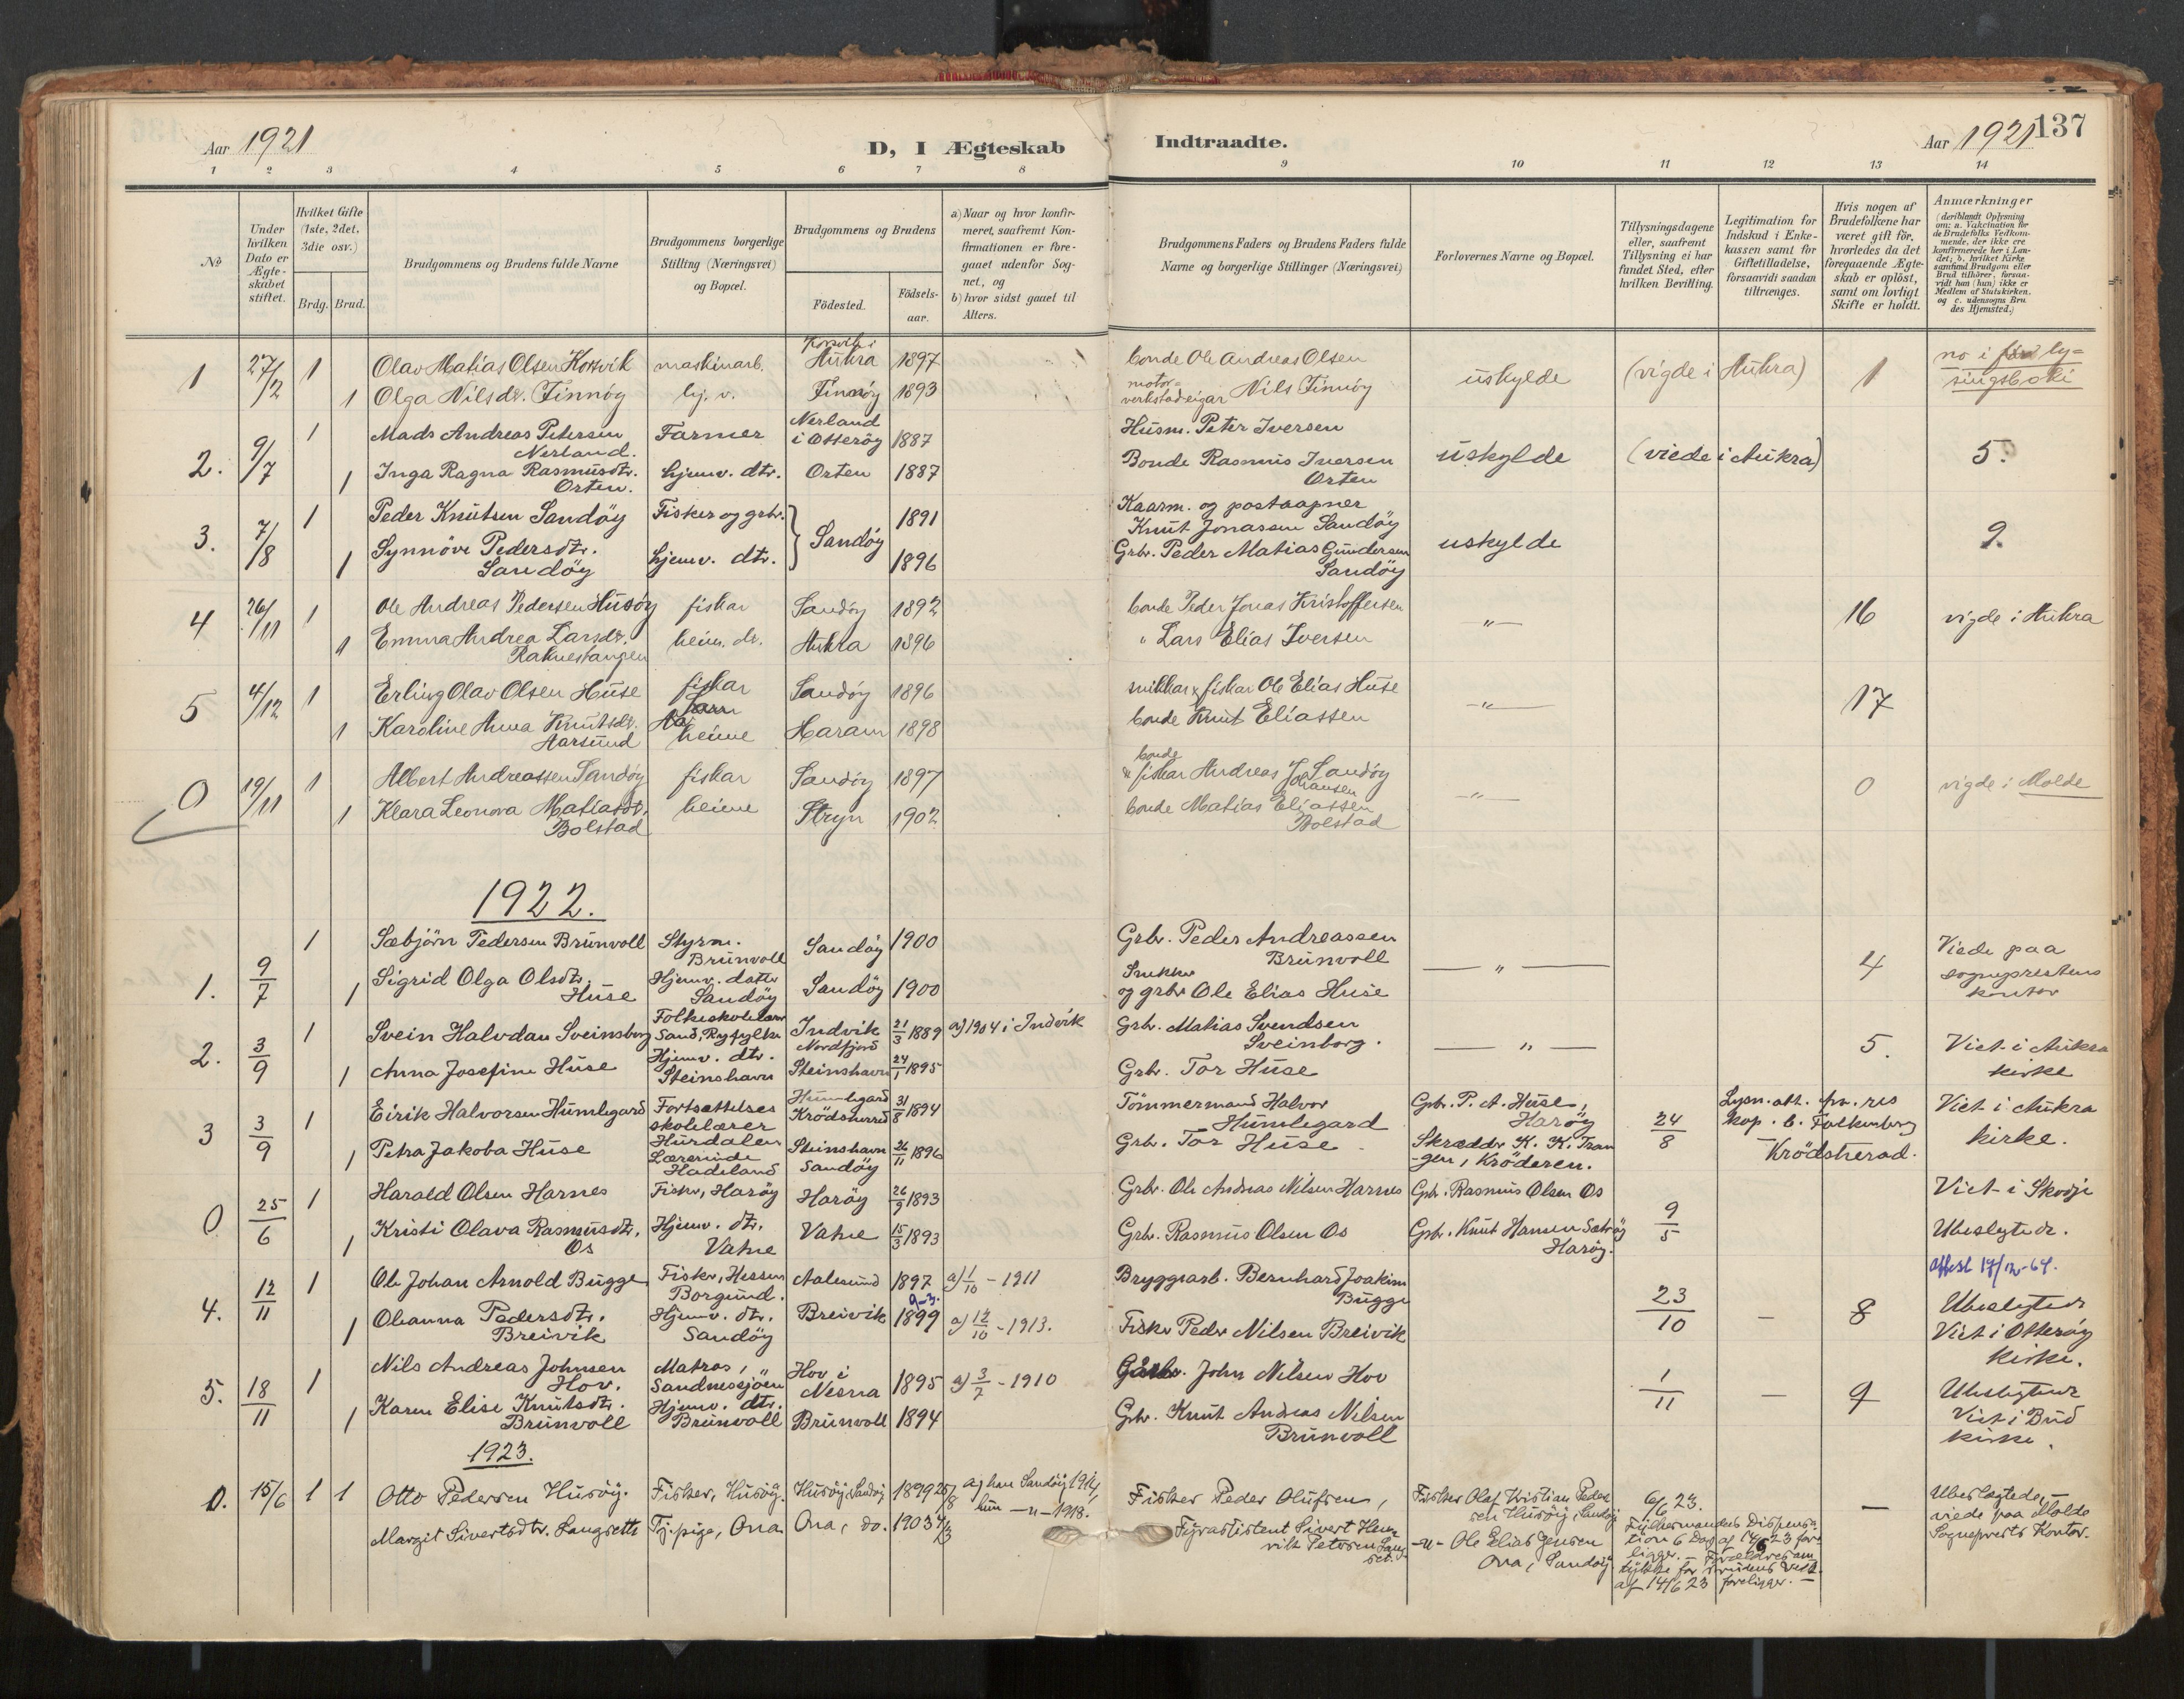 Aar 1921
D, I Ægteskab
Indtraadte.
Aar 1921
137
1 2 3 4 5 6 7 8 9 10 11 12 13 14
No
Under hvilken Dato er Ægteskabet stiftet.
Hvilket Gifte (1ste, 2det, 3die osv.)
Brdg. Brud.
Brudgommens og Brudens fulde Navne
Brudgommens borgerlige Stilling (Næringsvei) og Bopæl.
Brudgommens og Brudens
Födested.
Födsels-aar.
a) Naar og hvor konfirmeret, saafremt Konfirmationen er foregaaet udenfor Sognet, og
b) hvor sidst gaaet til Alters.
Brudgommens Faders og Brudens Faders fulde Navne og borgerlige Stillinger (Næringsvei)
Forlovernes Navne og Bopæl.
Tillysningsdagene eller, saafremt Tillysning ei har fundet Sted, efter hvilken Bevilling.
Legitimation for Indskud i Enkekassen samt for Giftetilladelse, forsaavidt saadan tiltrænges.
Hvis nogen af Brudefolkene har været gift för, hvorledes da det foregaaende Ægteskab er oplöst, samt om lovligt Skifte er holdt.
Anmærkninger
(deriblandt Oplysning om: a. Vakcination for de Brudefolks Vedkommende, der ikke ere konfirmerede her i Landet; b. hvilket Kirkesamfund Brudgom eller Brud tilhörer, forsaavidt han (hun) ikke er Medlem af Statskirken. og c. udensogns Brudes Hjemsted.)
1 27/2 1 Olav Matias Olsen Korsvik maskinarb. Korsvik i Aukra 1897 bonde Ole Andreas Olsen uskylde (vigde i Aukra) 1 no i lysingsboki
1 Olga Nilsdr. Finnöy hj. v. Finnöy 1893 motorverkstadeigar Nils Finnöy
2. 9/7 1 Mads Andreas Petersen Nerland. Farmer Nerland i Otteröy 1887 Husm. Peter Iversen uskylde (viede i Aukra) 5.
1 Inga Ragna Rasmusdtr. Orten. hjemv. dtr. Orten 1887 Bonde Rasmus Iversen Orten
3. 7/8 1 Peder Knutsen Sandöy Fisker og grbr. Sandöy 1891 Kaarm. og postaapner Knut Jonassen Sandöy uskylde 9.
1 Synnöve Pedersdtr. Sandöy hjemv. dtr. 1896 Grbr. Peder Matias Gundersen Sandöy
4 26/11 1 Ole Andreas Pedersen Husöy fiskar Sandöy 1892 bonde Peder Jonas Kristoffersen —"— 16 vigde i Aukra
1 Emma Andrea Larsdr. Raknestangen heim. dr. Aukra 1896 " Lars Elias Iversen
5 4/12 1 Erling Olav Olsen Huse fiskar Sandöy 1896 snikkar & fiskar Ole Elias Huse —"— 17
1 Karoline Anna Knutsdr. Aarsund heime Haram 1898 bonde Knut Eliassen
0 19/11 1 Albert Andreassen Sandöy fiskar Sandöy 1897 bonde & fiskar Andreas Johansen Sandöy —"— 0 vigde i Molde
1 Klara Leonora Matiasdt. Bolstad heime Stryn 1902 bonde Matias Eliassen Bolstad
1922.
1. 9/7 1 Sæbjörn Pedersen Brunvoll Styrm. Brunvoll Sandöy 1900 Grbr. Peder Andreassen Brunvoll —"— 4 Viede paa sogneprestens kontor
1 Sigrid Olga Olsdtr. Huse Hjemv. datter Sandöy Sandöy 1900 Snekker og grbr Ole Elias Huse
2. 3/9 1 Svein Halvdan Sveinsborg Folkeskolelærer Sand, Ryfylke Indvik Nordfjord 21/3 1889 a) 1904 i Indvik Grbr. Matias Svendsen Sveinborg. —"— 5. Viet i Aukra kirke
1 Anna Josefine Huse Hjemv. dtr. Steinshavn Steinshavn 24/1 1895 Grbr. Tor Huse
3 3/9 1 Eirik Halvorsen Humlegard Fortsættelses skolelærer Hurdalen Humlegard Krödsherred 31/8 1894 Tömmermand Halvor Humlegard Grbr. P. A. Huse, Haröy 24/8 Lysn. att. fra res kap. C. Falkenberg Krödsherad. Viet i Aukra kirke.
1 Petra Jakoba Huse Lærerinde Hadeland Steinshavn Sandöy 26/11 1896 Grbr. Tor Huse Skrædder K. K. Trangen, Kröderen.
0 25/6 1 Harald Olsen Harnes Fisker, Haröy Haröy 26/9 1893 Grbr. Ole Andreas Nilsen Harnes Grbr. Rasmus Olsen Os 9/5 Viet i Skodje
1 Kristi Olava Rasmusdtr. Os Hjemv. dtr. Vatne Vatne 15/3 1893 Grbr. Rasmus Olsen Os Grbr. Knut Hansen Sætröy Haröy. Ubeslegtede.
4. 12/11 1 Ole Johan Arnold Bugge Fisker, Hessen Borgund. Aalesund 1897 a) 1/10 - 1911 Bryggearb. Bernhard Joakim Bugge 23/10 — 8 attest 17/12-64. Ubeslegtede Viet i Otteröy kirke.
1 Oleanna Pedersdtr. Breivik Hjemv. dtr. Sandöy Breivik 9-3- 1899 a) 12/10 - 1913. Fisker Peder Nilsen Breivik
5. 18/11 1 Nils Andreas Johnsen Hov. Matros, Sandnessjöen Hov i Nesna 1895 a) 3/7 - 1910 Gaardbr. John Nilsen Hov 1/11 — 9 Ubeslegtede Viet i Bud kirke.
1 Karen Elise Knutsdtr. Brunvoll Hjemv. dtr. Brunvoll Brunvoll 1894 Grbr. Knut Andreas Nilsen Brunvoll
1923.
0. 15/6 1 1 Otto Pedersen Husöy. Fisker, Husöy. Husöy, Sandöy 1899 25/8 a) han Sandöy 1914, Fisker Peder Olufsen, Fisker Olaf Kristian Pedersen Husöy, Sandöy 6/6 23. — Ubeslægtede, — viede paa Molde Sogneprests Kontor.
Margit Sivertsdtr. Langsett Tj.pige, Ona Ona, do. 1903 hun —"— 1918. Fyrassistent Sivert Henrik Petersen Langset. —"— Ole Elias Jensen Ona, Sandöy Fylkesmandens Dispensation 6 Dag af 14/6 23 foreligger. — Forældresamtykke for Brudens Vedk. af 14/6 23 foreligger. —